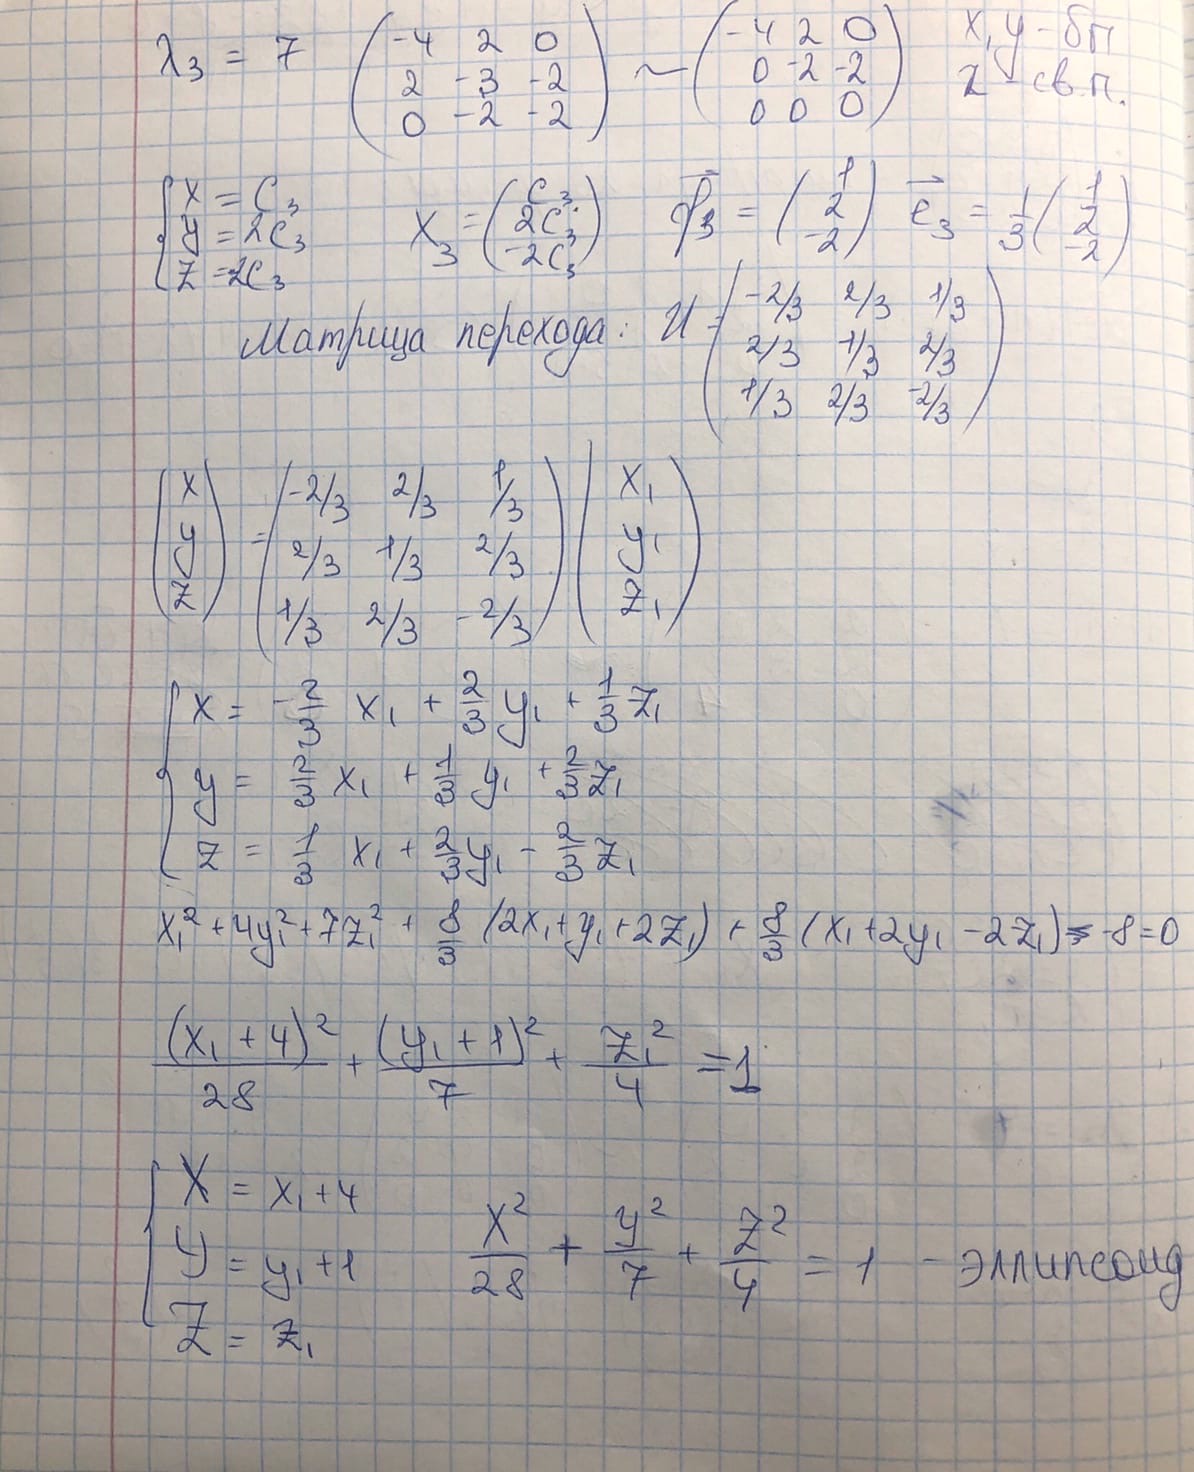 λ₃ = 7 (-4 2 0; 2 -3 -2; 0 -2 -2) ~ (-4 2 0; 0 -2 -2; 0 0 0) x,y - бп z св.п.
{x = C₃; y = 2C₃; z = -2C₃ X₃ = (C₃; 2C₃; -2C₃) f₃ = (1; 2; -2) e₃ = 1/3 (1; 2; -2)
Матрица перехода: U = (-2/3 2/3 1/3; 2/3 1/3 2/3; 1/3 2/3 -2/3)
(x; y; z) = (-2/3 2/3 1/3; 2/3 1/3 2/3; 1/3 2/3 -2/3) (x₁; y₁; z₁)
{x = -2/3 x₁ + 2/3 y₁ + 1/3 z₁
y = 2/3 x₁ + 1/3 y₁ + 2/3 z₁
z = 1/3 x₁ + 2/3 y₁ - 2/3 z₁
x₁² + 4y₁² + 7z₁² + 8/3 (2x₁ + y₁ + 2z₁) + 8/3 (x₁ + 2y₁ - 2z₁) - 8 = 0
(x₁ + 4)²/28 + (y₁ + 1)²/7 + z₁²/4 = 1
{X = x₁ + 4
Y = y₁ + 1
Z = z₁
X²/28 + y²/7 + Z²/4 = 1 - эллипсоид